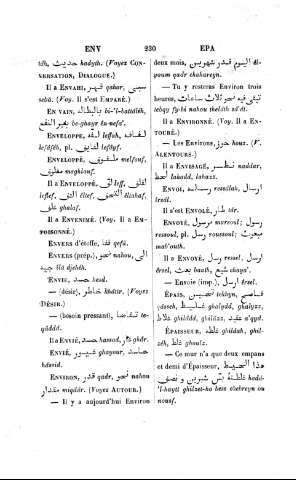 ENV 230 EPA
tth, حديث hadyth. (Voyez CON-
VERSATION, DIALOGUE.)
Il a ENVAHI, قهر qahar, سبى
sebä. (Voy. Il s'est EMPARÉ.)
EN VAIN, بالبطاله
بغير النفع be-ghayr
ENVELOPPE, لفه leffeh, لفافه
lefâfeh, pl. لفايف lefâyf.
ENVELOPPÉ, ملفوف melfouf,
مغلوف meghlouf.
Il a ENVELOPPÉ, لف leff,
غلف ghalaf.
Il a ENVENIMÉ. (Voy. Il a EM-
POISONNÉ.)
ENVERS d'étoffe, قفا qefä.
ENVERS (prép.), نحو nahou, الى
جهة ilä djeheh.
ENVIE, حسد hesd.
— (désir), خاطر khâtir. (Voyez
DÉSIR.)
— (besoin pressant), تقاضا te-
qâddâ.
Il a ENVIÉ, حسد hassad, غار ghâr.
ENVIÉ, غيور ghayour, حاسد
hâssid.
ENVIRON, قدر qadr, نحو nahou
مقدار miqdâr. (Voyez AUTOUR.)
— Il y a aujourd'hui Environ
deux mois, اليوم قدر شهرين
youm qadr chahareyn.
— Tu y resteras Environ trois
heures, تبقى فيه نحو ثلاث ساعات
tebqy fy-hi nahou thelâth sâ'ât.
Il a ENVIRONNÉ. (Voy. Il a EN-
TOURÉ.)
— Les Environs, حوز houz. (V.
ALENTOURS.)
Il a ENVISAGÉ, نظر naddar,
لحظ lahadd, lahazz.
ENVOI, رساله ressâleh, ارسال
irsâl.
Il s'est ENVOLÉ, طار târ.
ENVOYÉ, مرسول mersoul, رسول
ressoul, pl. رسل roussoul; مبعوث
mab'outh.
Il a ENVOYÉ, رسل ressel, ارسل
érsel, بعث baath, شيع chaya'.
— Envoie (imp.), ارسل érsel.
ÉPAIS, تخين tekhyn, قاصى
qâsseh, غليظ ghalydd, ghalyzz,
غلاظ ghilâdd, ghilâzz, عقيد a'qyd.
ÉPAISSEUR, غلظه ghildah, ghil-
zéh, غلظ ghoulz.
— Ce mur n'a que deux empans
et demi d'Épaisseur, هذا الحيط
غلظته بس شبرين و نصف hadâ-
'l-hayt ghilzet-ho bess chebreyn ou
nousf.